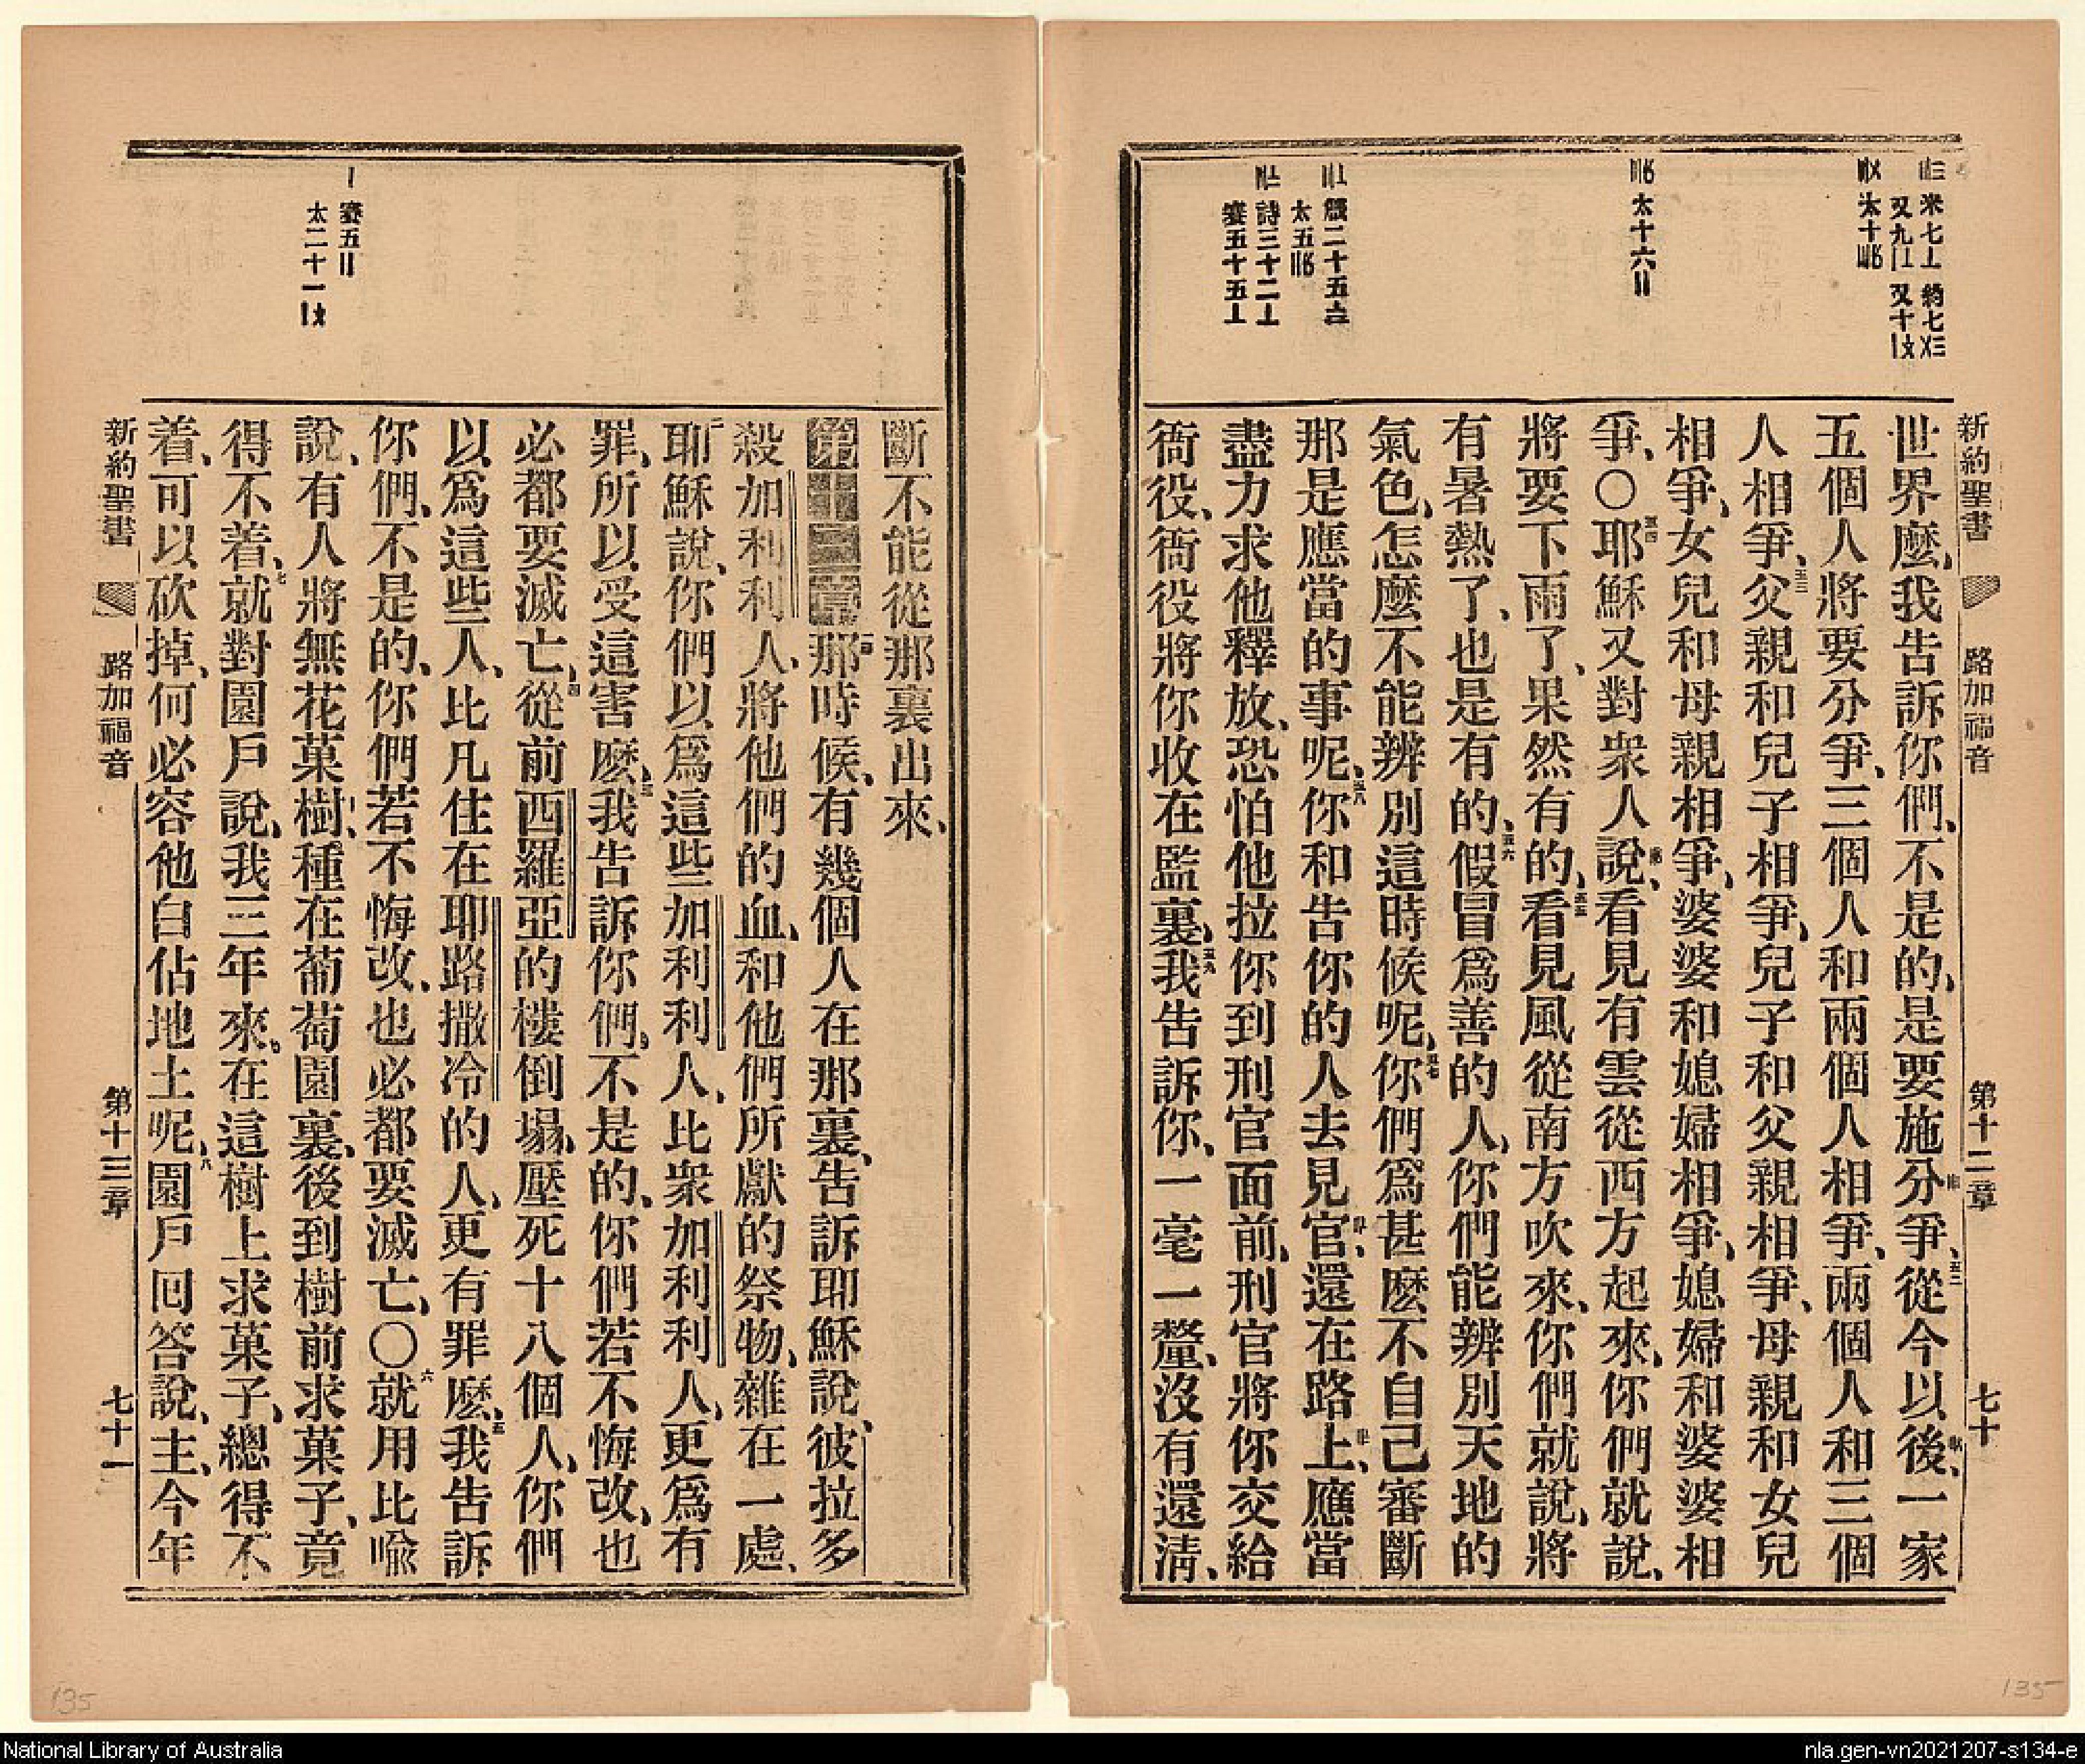 新約聖書 路加福音 第十二章 七十
世界麽、我告訴你們、不是的、是要施分爭、五二從今以後、一家
五個人將要分爭、三個人和兩個人相爭、兩個人和三個
人相爭、五三父親和兒子相爭、兒子和父親相爭、母親和女兒
相爭、女兒和母親相爭、婆婆和媳婦相爭、媳婦和婆婆相
爭、〇五四耶穌又對衆人說、看見有雲從西方起來、你們就說、將
將要下雨了、果然有的、五五看見風從南方吹來、你們就說、將
有暑熱了、也是有的、五六假冒爲善的人、你們能辨別天地的
氣色、怎麽不能辨別這時候呢、五七你們爲甚麽不自己審斷
那是應當的事呢、五八你和告你的人去見官、還在路上、應當
盡力求他釋放、恐怕他拉你到刑官面前、刑官將你交給
衙役、衙役將你收在監裏、五九我告訴你、一毫一釐、沒有還淸、
斷不能從那裏出來、
第十三章一那時候、有幾個人在那裏、告訴耶穌說、彼拉多
殺加利利人、將他們的血、和他們所獻的祭物、雜在一處、
二耶穌說、你們以爲這些加利利人、比衆加利利人、更爲有
罪、所以受這害麽、三我告訴你們、不是的、你們若不悔改、也
必都要滅亡、四從前西羅亞的樓倒塌、壓死十八個人、你們
以爲這些人、比凡住在耶路撒冷的人、更有罪麽、五我告訴
你們、不是的、你們若不悔改、也必都要滅亡、〇六就用比喩
說、有人將無花菓樹、種在葡萄園裏、後到樹前求菓子、竟
得不着、七就對園戶說、我三年來、在這樹上求菓子、總得不
着、可以砍掉、何必容他白佔地土呢、八園戶回答說、主、今年
新約聖書 路加福音 第十三章 七十一
135
135
National Library of Australia
nla.gen-vn2021207-s134-e